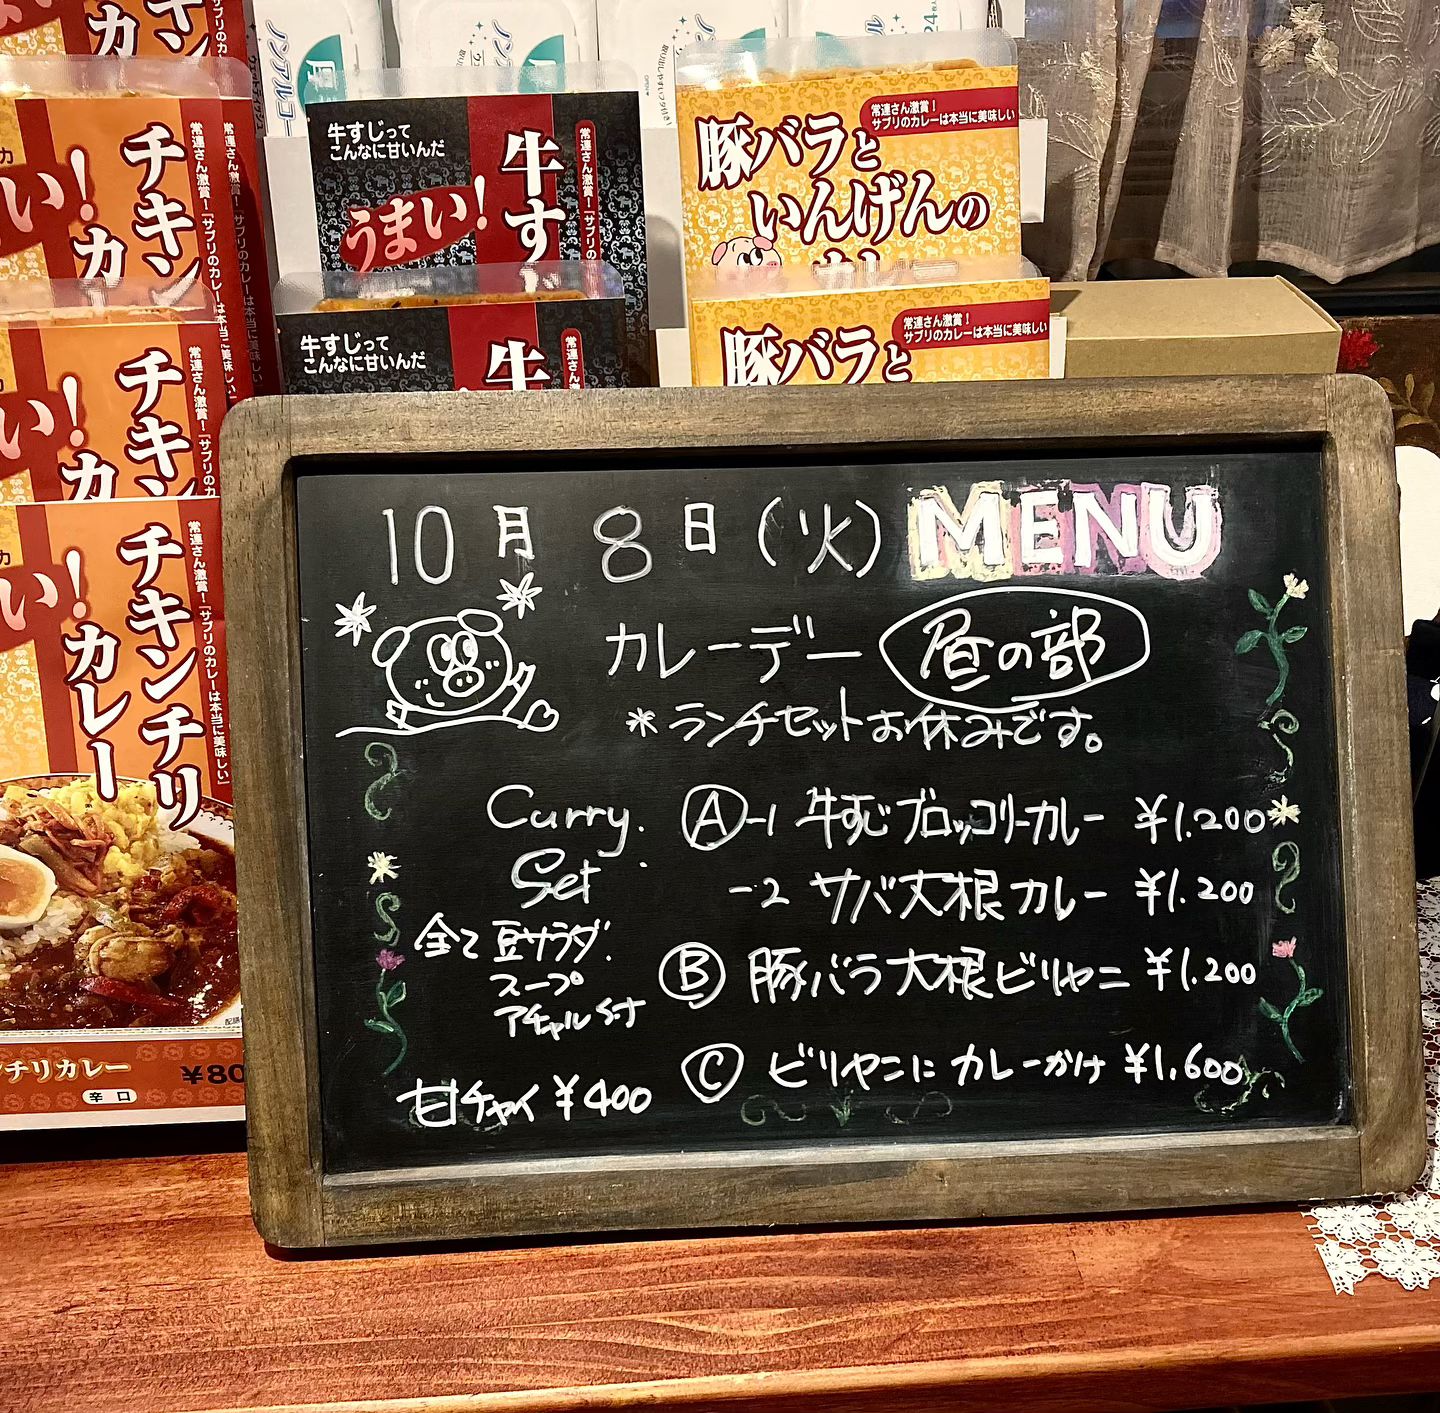 チキン
カ
常連さん激賞!「サプリのカレーは本当に美味しい」
い!
チキンチリ
カレー
チリカレー
辛口
¥80
ノンアルコー
牛すじって
こんなに甘いんだ
うまい!
牛す
常連さん激賞!「サプリの
牛すじって
こんなに甘いんだ
牛
常連さん激賞!
サプリのカレーは本当に美味しい
豚バラと
いんげんの
カレー
常連さん激賞!
サプリのカレーは本当に美味しい
豚バラと
10月8日(火) MENU
カレーデー 昼の部
*ランチセットお休みです。
Curry.
Set
全て豆サラダ.
スープ
アチャル付
甘チャイ ¥400
Ⓐ-1 牛すじブロッコリーカレー ¥1.200
-2 サバ大根カレー ¥1.200
Ⓑ 豚バラ大根ビリヤニ ¥1.200
Ⓒ ビリヤニにカレーかけ ¥1,600